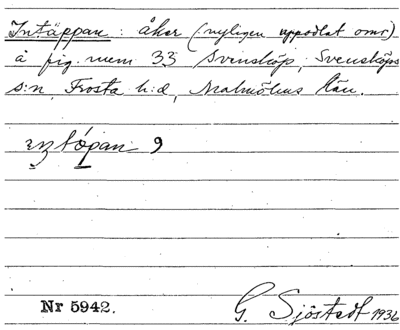 Intäppan: åker (nyligen uppodlat omr)
å fig. num 33 Svensköp, Svensköps
s:n, Frosta h:d, Malmöhus län.
9
Nr 5942. G. Sjöstedt 1936